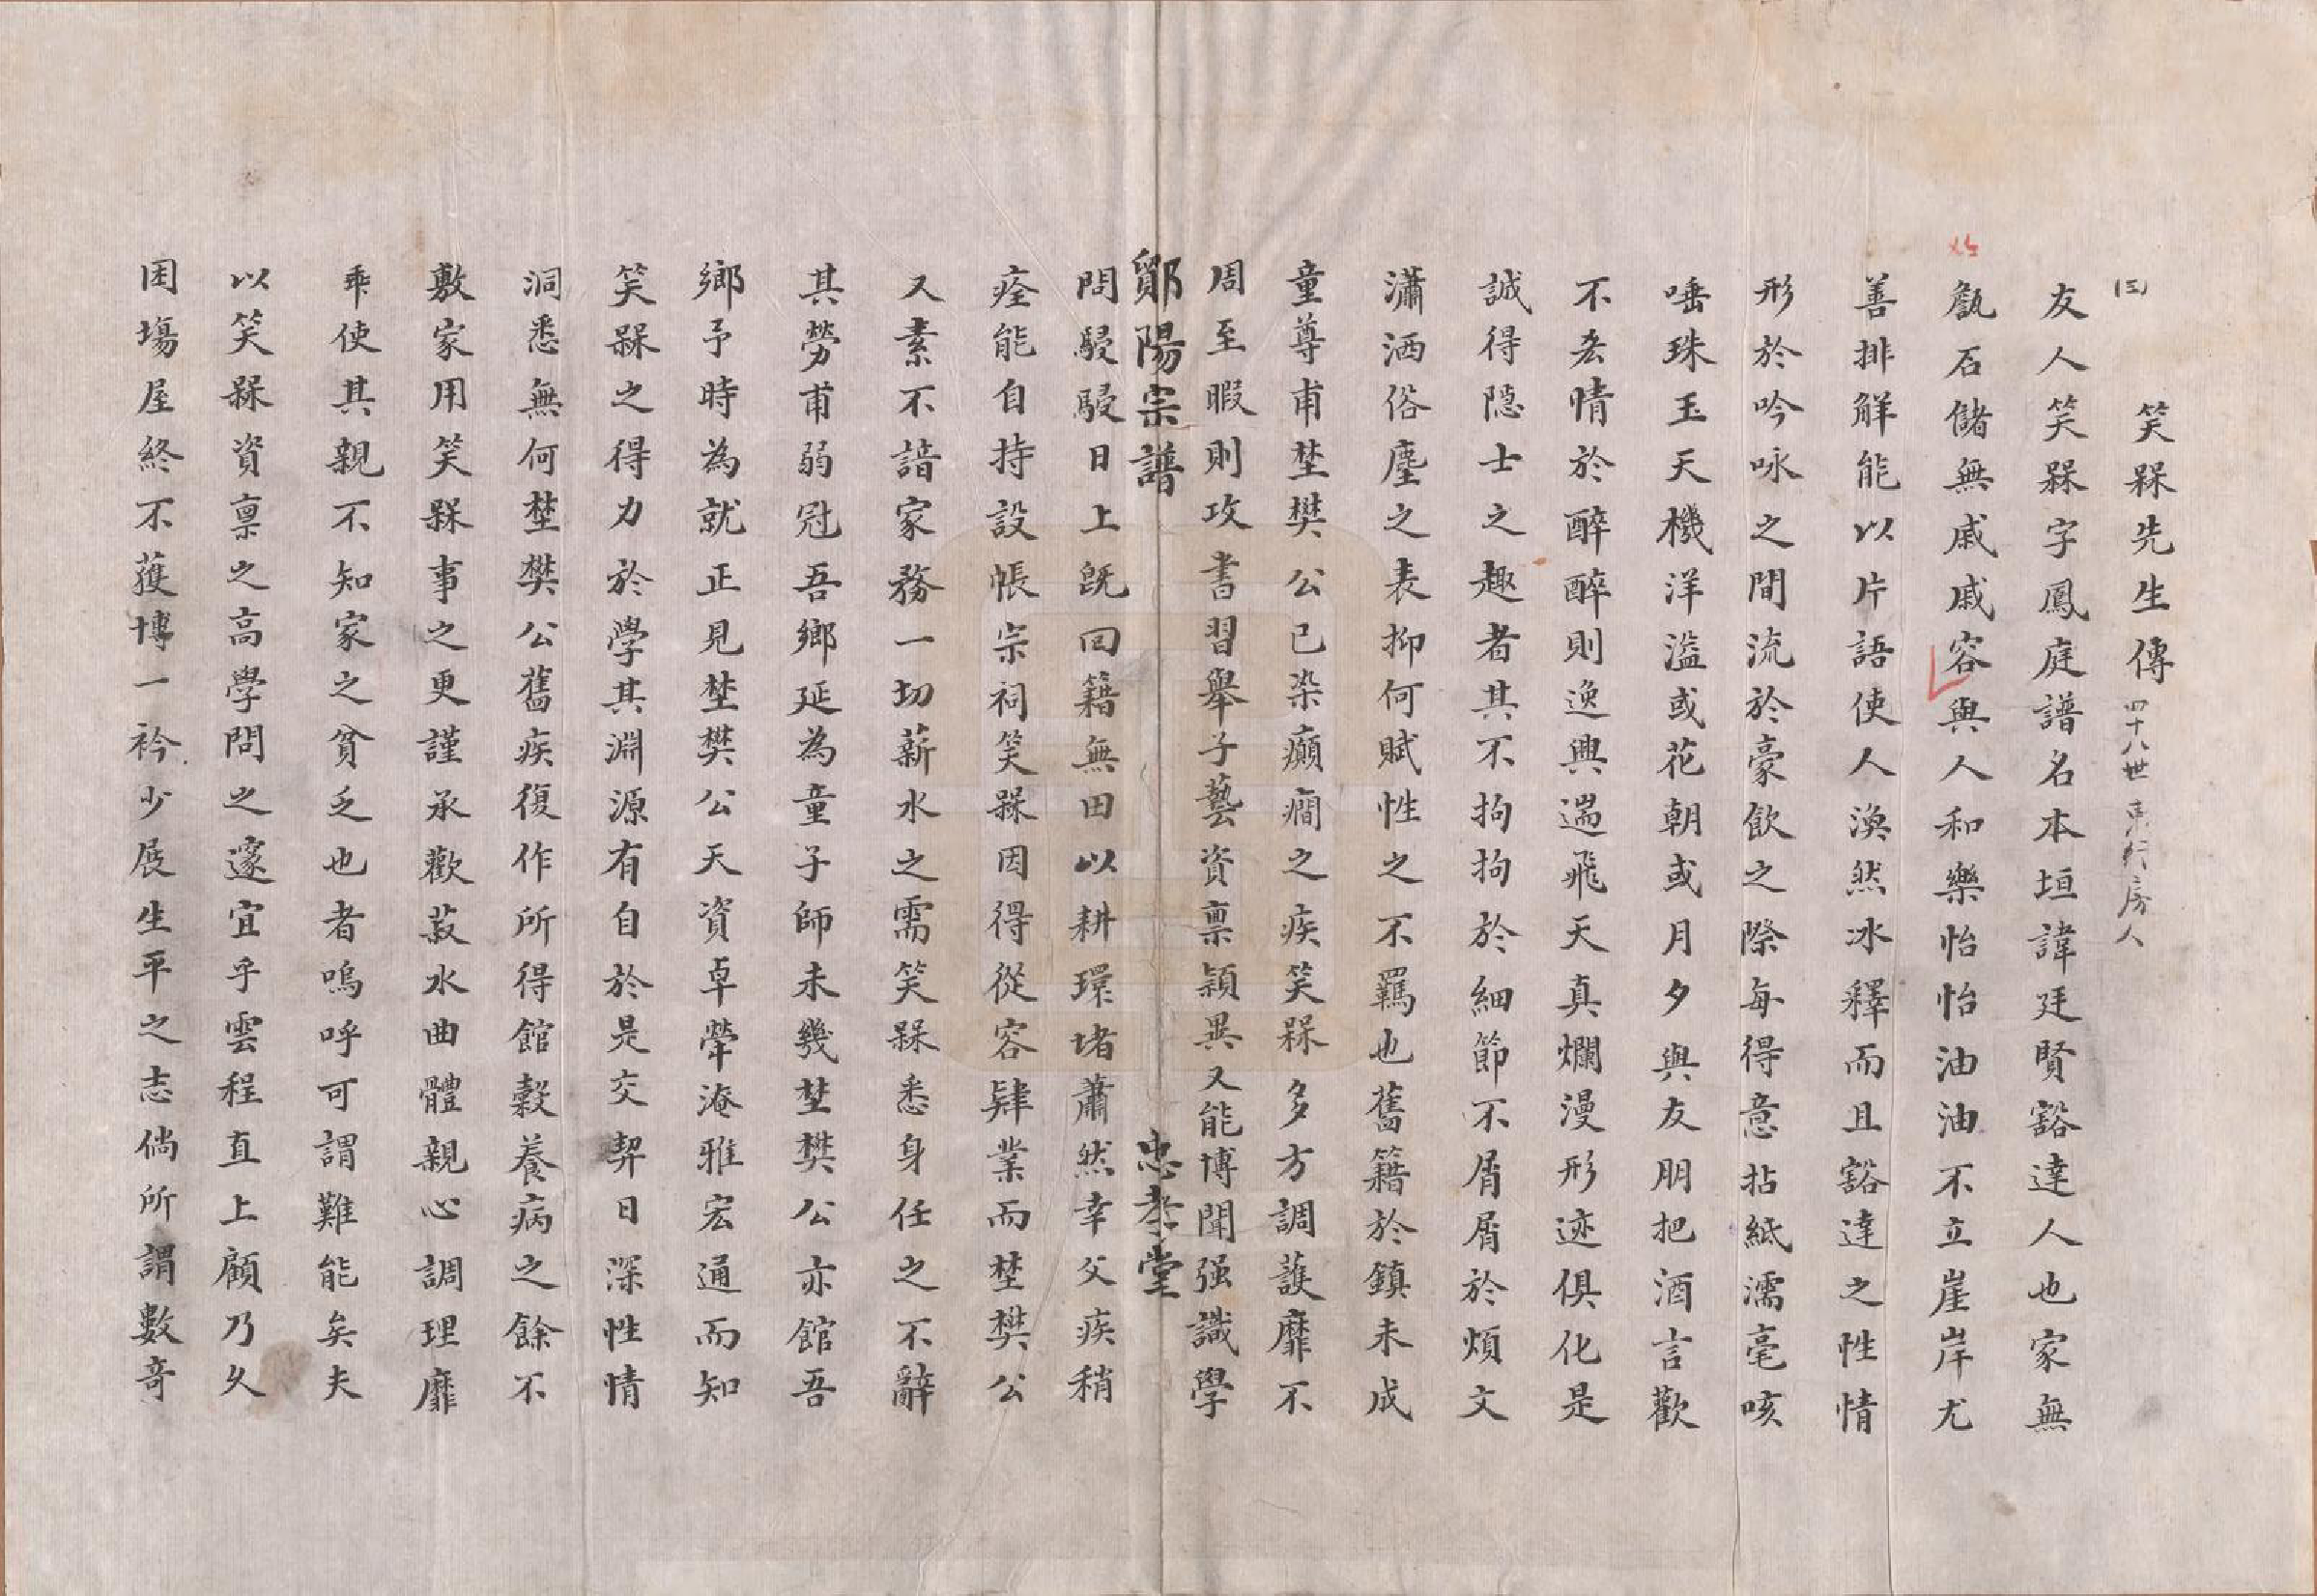 三
笑槑先生傳 四十八世 房人
友人笑槑字鳳庭譜名本垣諱廷賢豁達人也家無
甔石儲無戚戚容與人和樂怡怡油油不立崖岸尤
善排解能以片語使人渙然冰釋而且豁達之性情
形於吟咏之間流於豪飲之際每得意拈紙濡毫咳
唾珠玉天機洋溢或花朝或月夕與友朋把酒言歡
不忝情於醉醉則逸興遄飛天真爛漫形迹俱化是
誠得隱士之趣者其不拘拘於細節不屑屑於煩文
瀟洒俗塵之表抑何賦性之不羈也舊籍於鎮未成
童尊甫埜樊公已染癲癎之疾笑槑多方調護靡不
周至暇則攻書習舉子藝資禀穎異又能博聞强識學
鄮陽宗譜 忠孝堂
問駸駸日上既回籍無田以耕環堵蕭然幸父疾稍
痊能自持設帳宗祠笑槑因得從容肄業而埜樊公
又素不諳家務一切薪水之需笑槑悉身任之不辭
其勞甫弱冠吾鄉延為童子師未幾埜樊公亦館吾
鄉予時為就正見埜樊公天資卓犖淹雅宏通而知
笑槑之得力於學其淵源有自於是交契日深性情
洞悉無何埜樊公舊疾復作所得館穀養病之餘不
敷家用笑槑事之更謹承歡菽水曲體親心調理靡
乖使其親不知家之貧乏也者嗚呼可謂難能矣夫
以笑槑資禀之高學問之邃宜乎雲程直上顧乃久
困塲屋終不獲博一衿少展生平之志倘所謂數奇